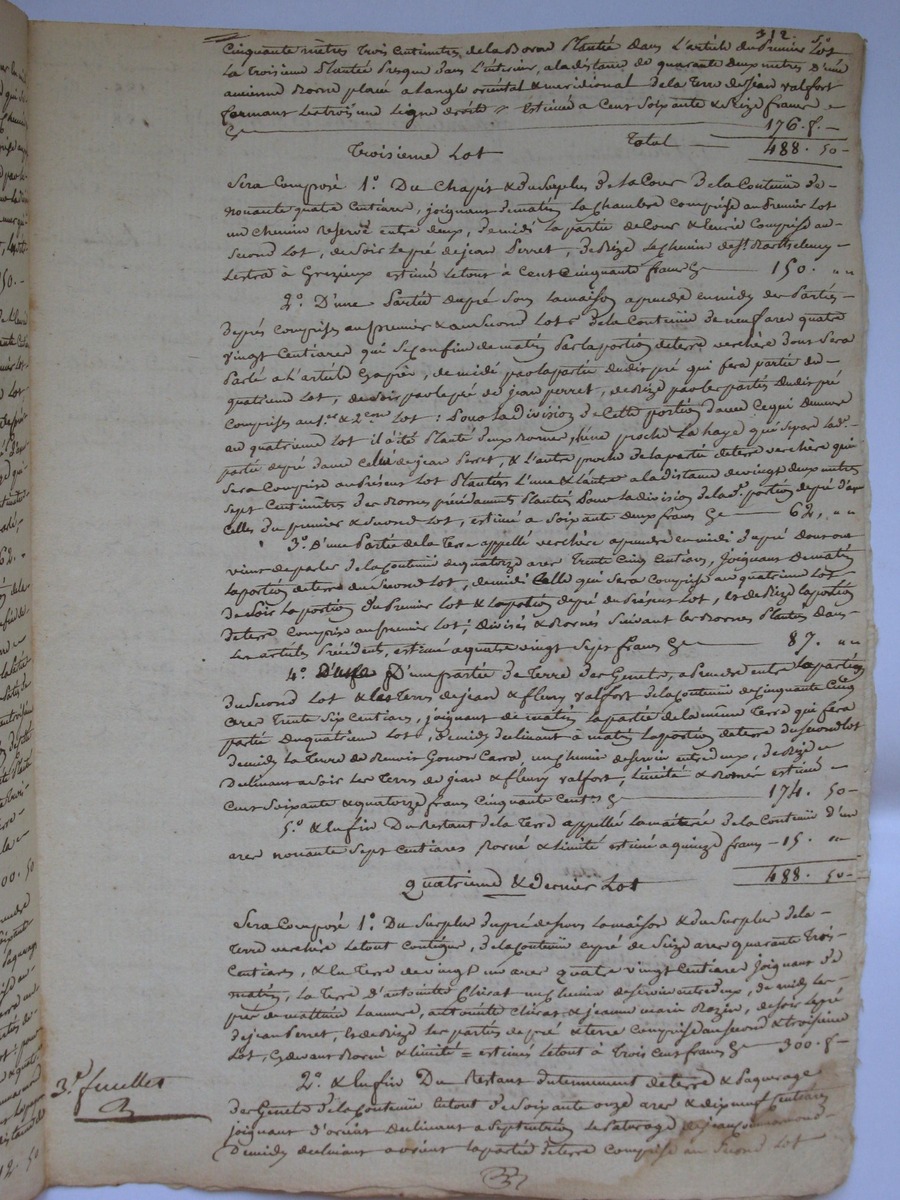 312. 50
Cinquante mètres trois centimètres de la Borne Plantée dans L'article du Premier Lot
La troisieme Plantée Presque dans L'interieur, a la distance de quarante deux metres d'une
ancienne Borne placée a langle oriental & meridional de la Terre de Jean valfort
formant les trois une Ligne droite estimé a Cent Soixante & Seize francs
176. f. —
Total — 488. 50 —
Troisieme Lot
Sera Composé 1.º Du Chapit & du Surplus de la Cour de la Contenüe de
nonante quatre Centiares, joignant de matin La Chambre Comprise au Premier Lot
un chemin reservé entre deux, de midi la partie de Cour & Comprise au
Second Lot, de Soir Le pré de jean Perret, de Bize Le chemin de St. Barthelemy
Lestra à Grezieux estimé Le tout à Cent Cinquante francs 150. " "
2.º D'une Partie du pré Sous La maison a prendre en midi des Parties
de prés Comprises au Premier & au Second Lots de la Contenüe de neuf ares quatre
vingt Centiares qui Se Confine de matin Par la portion de terre verchère dont Sera
Parlé a L'article après, de midi par la partie du dit pré qui fera partie du
quatrieme Lot, de Soir par le pré de jean perret, de Bize par les parties du dit pré
Comprises au 1.er & 2.eme Lot : Pour La division de Cette portion d'avec Ce qui demeure
au quatrieme Lot il a été Planté deux Bornes, L'une proche La haye qui Separe La d.e
partie de pré d'avec Celui de jean Perret, & L'autre proche de la partie de terre verchère qui
Sera Comprise au Présent Lot Plantées L'une & L'autre a la distance de vingt deux metres
Sept Centimètres des Bornes précédament Plantées Pour La division de la d.e portion de pré d'avec
Celles du premier & Second Lot, estimé a Soixante deux francs — 62, " "
3.º D'une Partie de la Terre appellé verchère a prendre en midi du pré dont on
vient de parler de la Contenüe de quatorze ares Trente Cinq Centiares, joignant de matin
La portion de terre du Second Lot, de midi Celle qui Sera Comprise au quatrieme Lot
de Soir La portion du Premier Lot & La portion de pré du Présent Lot, & de Bize La portion
de terre Comprise au Premier Lot ; divisés & Bornés Suivant les Bornes Plantées dans
Les articles Précédents, estimé a quatre vingt Sept francs — 87. " "
4.º D'une partie de Terre des Genets, a Prendre entre La partie
du Second Lot & Les Terres de jean & fleury valfort de la Contenüe de Cinquante Cinq
ares Trente Six Centiares, joignant de matin La partie de la même Terre qui fera
partie du quatrieme Lot, de midi declinant à matin La portion de terre du Second Lot
de midi La Terre de Benoit Carra, un chemin de Servin entre deux, de Bize
declinant a Soir Les Terres de jean & fleury valfort, Limité & Borné estimé
Cent Soixante & quatorze francs Cinquante Cent.s — 174. 50 —
5.º & Enfin Du Restant de la Terre appellée La de la Contenüe d'un
ares nonante Sept Centiares Borné & Limité estimé a quinze francs — 15. "
488. 50 —
Quatrieme & Dernier Lot
Sera Composé 1.º Du Surplus du pré dessous La maison & du Surplus de la
Terre verchère Le tout Contigue, de la Contenüe en pré de Seize ares quarante Trois
Centiares, & en Terre de vingt un ares quatre vingt Centiares joignant de
matin, La Terre d'antoinette Clirat un chemin de Servin entre deux, de midi Les
prés de matthieu antoinette Clirat & jeanne marie de Soir Le pré
de jean Perret, & de Bize Les parties de pré & terre Comprises au Second & troisieme
Lot, Cydevant Borné & Limité = estimés Le tout à Trois Cent francs — 300. f —
2.º & Enfin Du Restant du tennement de terre & Paquerage
des Genets de la Contenüe Le tout de Soixante onze ares & dix neuf Centiares
joignant d'orient declinant a Septentrion Le Paturage de jean
de midi declinant a orient La partie de terre Comprise au Second Lot
3.e feuillet